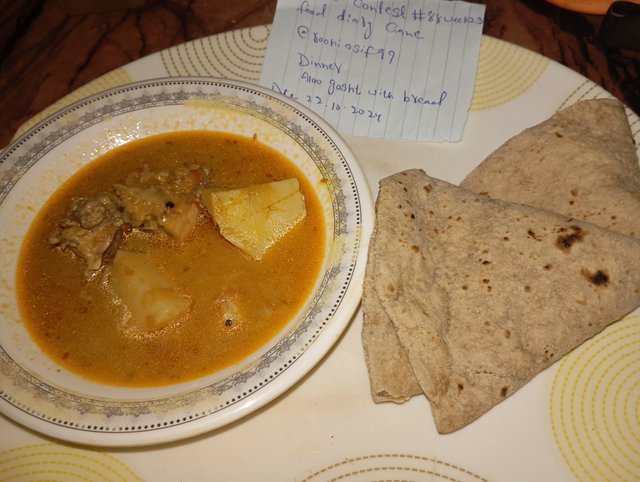 Contest #88 week 23
food diary Game
@roohiasif99
Dinner
Aloo gosht with bread
Date 22.10.2024